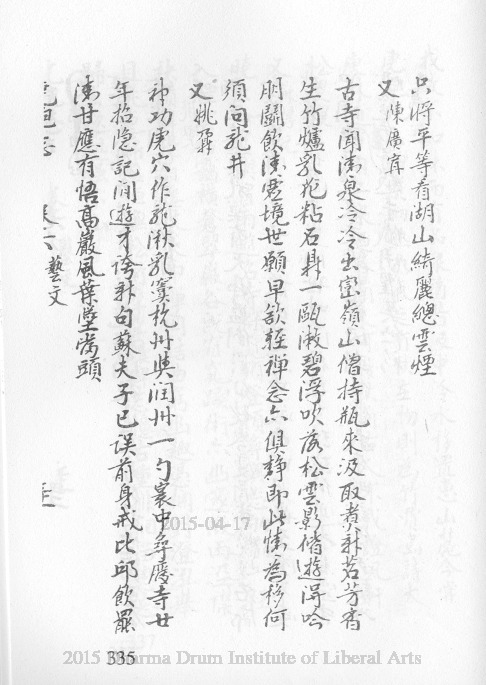 只將平等看湖山綺麗總雲煙
又陳廣賓
古寺聞清泉泠泠出峦嶺山僧持瓶來汲取煮新茗芳香
生竹爐乳花粘石鼎一甌漱碧浮吹落松雲影偕遊得吟
朋鬬飲清霊境世願早欲輕禅念亦俱静即此情為移何
須問龍井
又姚羿
神功虎穴作龍湫乳竇杭州與润州一勺寰中尋慶寺廿
年招隐記间遊才誇新句蘇夫子已误前身戒比邱飲罷
清甘應有悟高巖風葉墮當頭
藝文
335
2015-04-17
2015 Dharma Drum Institute of Liberal Arts